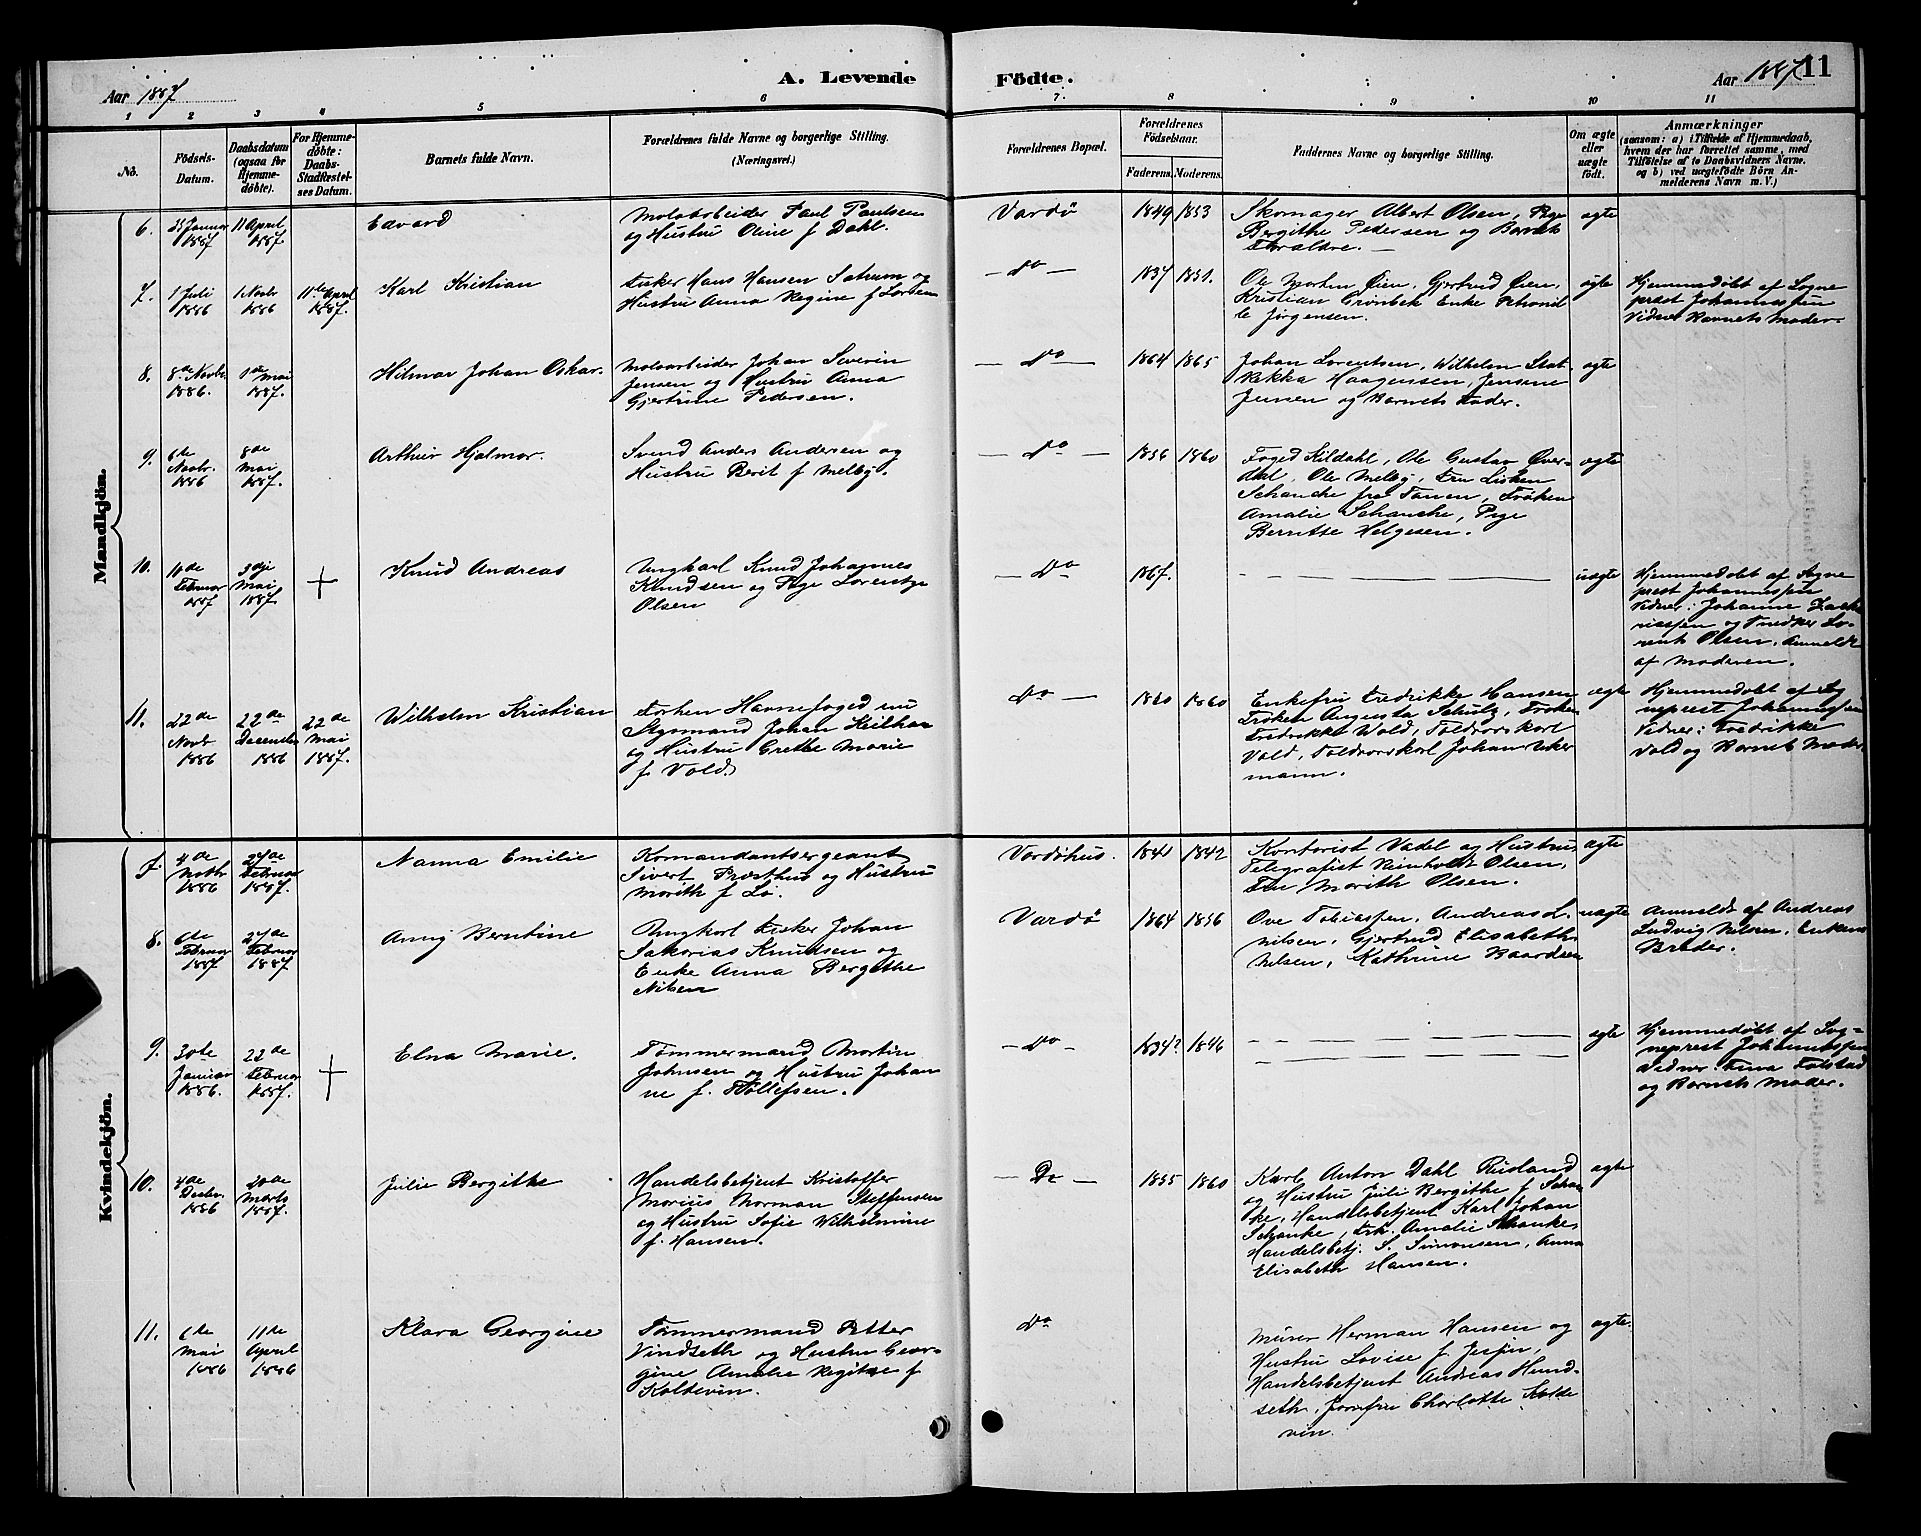 Aar 1887
A. Levende
Födte.
Aar 1887
11
1 2 3 4 5 6 7. 8 9 10 11
No.
Födsels-
Datum.
Daabsdatum
(ogsaa for
Hjemme-
döbte).
For Hjemme-
döbte:
Daabs-
Stadfæstel-
ses Datum.
Barnets fulde Navn.
Forældrenes fulde Navne og borgerlige Stilling.
(Næringsvei.)
Forældrenes Bopæl.
Forældrenes
Födselsaar.
Faderens. Moderens.
Faddernes Navne og borgerlige Stilling.
Om ægte
eller
uægte
födt.
Anmærkninger
(saasom: a) i Tilfælde af Hjemmedaab,
hvem der har forrettet samme, med
Tilföielse af to Daabsvidners Navne.
og b) ved uægtefödte Börn An-
melderens Navn m. V.)
Mandkjön.
6.
Januar
1887
11 April
1887
Edvard
Moloarbeider Paul Paulsen
og Hustru Oline f Dahl.
Vardö
1849 1853
Skomager Albert Olsen, Pige
Bergithe Pedersen og Barnets
Forældre. —
ægte
7.
1 Juli
1886
1 Novbr
1886
11te April
1887.
Karl Kristian
Fisker Hans Hansen Sætrum og
Hustru Anna Regine f
— Do —
1837 1851.
Ole Morten Øien, Gjertrud Øien,
Kristian Grönbek Enke Petronil
le Jörgensen.
ægte
Hjemmedöbt af Sogne
prest Johannessen
Vidner Barnets Moder.
8.
8de Novbr.
1886.
1de Mai
1887.
Hilmar Johan Oskar.
Moloarbeider Johan Severin
Jensen og Hustru Anna
Gjertrine Pedersen.
— Do —
1864 1865
Johan Lorentsen, Wilhelm
Rekka Haagensen, Jensine
Jensen og Barnets Fader.
ægte
9.
6de
Novbr.
1886
8de
Mai
1887.
Arthur Hjalmar.
Svend Anders Andersen og
Hustru Berit f Melby.
— Do —
1856 1860
Foged Kildahl, Ole Gustav Över-
dal, Ole Melby, Fru Lisken
Schanche fra Tanen, Fröken
Amalie Schanche, Pige
Berritte Helgesen.
ægte
10.
Februar
1887
3dje
Mai
1887
+
Knud Andreas
Ungkarl Knud Johannes
Knudsen og Pige
Olsen
— Do
1867.
uægte
Hjemmedöbt af Sogne
prest Johannessen
Vidner: Johanne Zacha
riassen og Lo-
rents Olsen. Anmeldt
af Moderen.
11.
22de
Novb
1886
22de
Decembr
1886
22de
Mai
1887.
Wilhelm Kristian
Havnefoged nu
Styrmand Johan Keilhau
og Hustru Grethe Marie
f Vold.
Do —
1860 1860
Enkefru Fredrikke Hansen
Fröken Augusta Schulz, Fröken
Fredrikke Vold, Toldrorskarl
Vold, Toldrorskarl Johan
mann.
ægte
Hjemmedöbt af Sog
neprest Johannessen
Vidner: Fredrikke
Vold og Barnets Moder
Kvindekjön.
7.
4de
Novbr
1886
27de
Februar
1887.
Nanna Emilie
Komandantsergeant
Sivert Præsthus og Hustru
Marith f Lö.
Vardöhus.
1841 1842
Kontorist Vadel og Hustru
Telegrafist Reinholdt Olsen,
Fru Marith Olsen.
ægte
8.
6de
Februar
1887
27de
Februar
1887
Anny Berntine
Ungkarl Fisker Johan
Sakarias Knudsen og
Enke Anna Bergithe
Nilsen
Vardö
1864 1856
Ove Tobiassen, Andreas L.
Nilsen, Gjertrud Elisabeth
Nilsen, Kathrine Baardsen
uægte
Anmeldt af Andreas
Ludvig Nilsen, Enkens
Broder.
9.
30te
Januar
1886.
22de
Februar
1887.
+
Elna Marie.
Tömmermand Martin
Johnsen og Hustru Johan
ne f. Tollefsen.
— Do —
1834? 1846
ægte
Hjemmedöbt af Sog-
neprest Johannessen
Vidner Tina Folstad
og Barnets Moder.
10.
4de
Decbr.
1886
20de
Marts
1887.
Julie Bergithe
Handelsbetjent Kristoffer
Marius Norman Steffensen
og Hustru Sofie Wilhelmine
f. Hansen.
— Do —
1855 1860
Karl Anton Dahl Ruuland
og Hustru Juli Bergithe f Schan
ke, Handelsbetjent Karl Johan
Schanke, Frk. Amalie Schanke,
Handelsbetj. S. Simonsen, Anna
Elisabeth Hansen.
ægte
11.
6de
Mai
1886
11de
April
1886
Klara Georgine
Tömmermand Petter
Vindseth og Hustru Geor-
gine Amalie Regitze f
Koldevin.
Do
Murer Herman Hansen og
Hustru Lovise f.
Handelsbetjent Andreas Hund-
seth, Jomfru Charlotte Kolde
vin.
ægte.